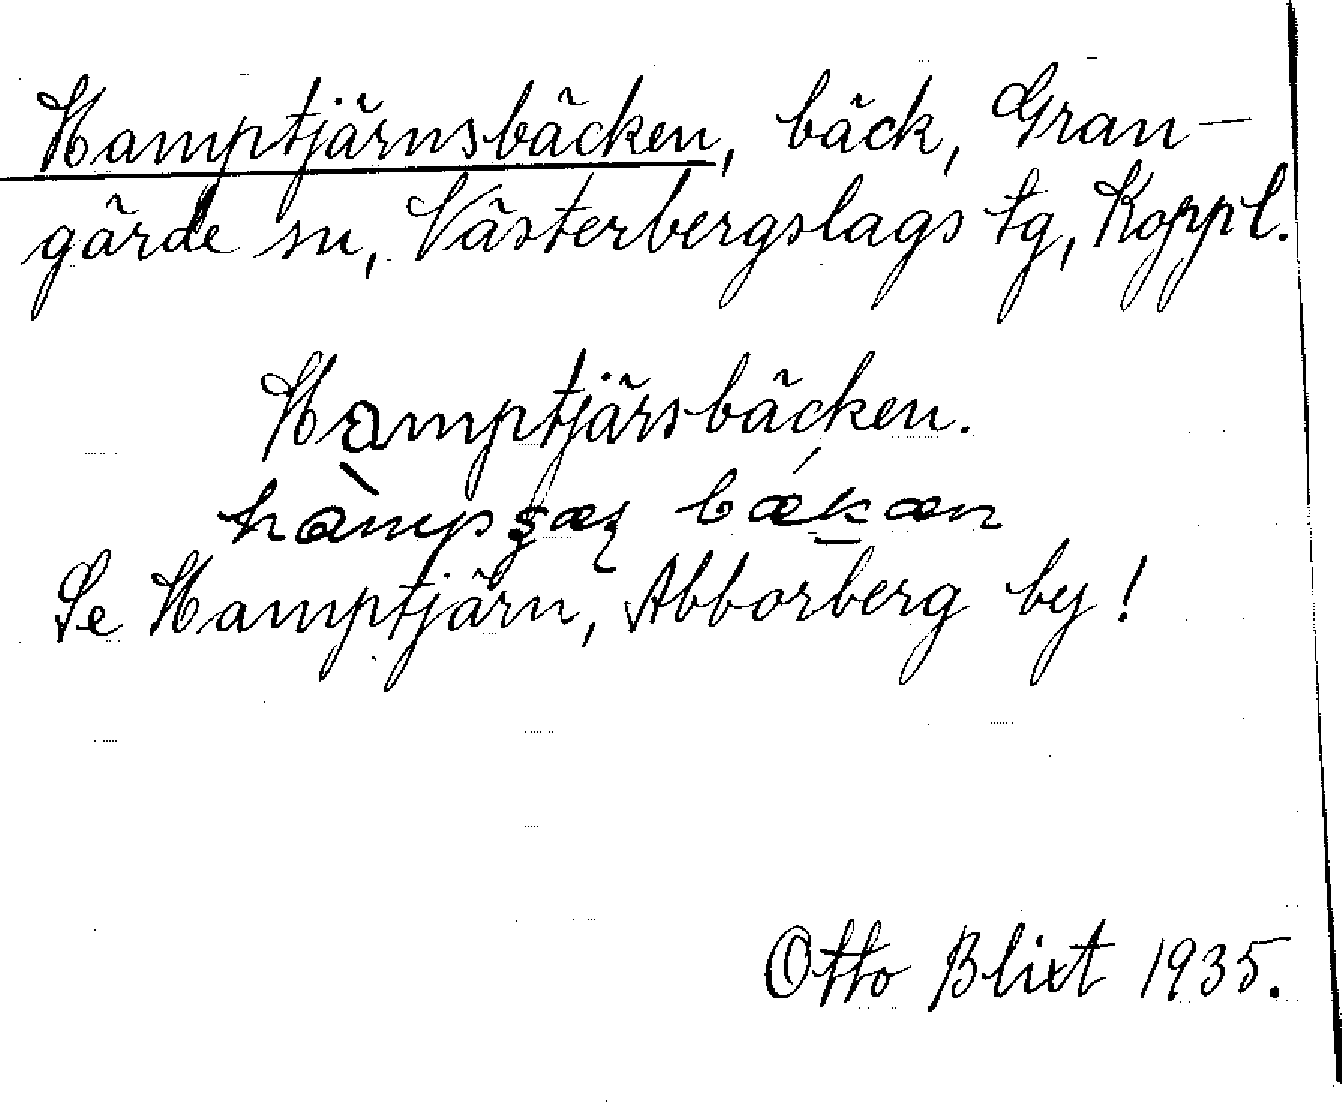 Hamptjärnsbäcken, bäck, Gran-
gärde sn, Västerbergslags tg, Koppl.
Hamptjärsbäcken.
bækæn
Se Hamptjärn, Abborberg by!
Otto Blixt 1935.